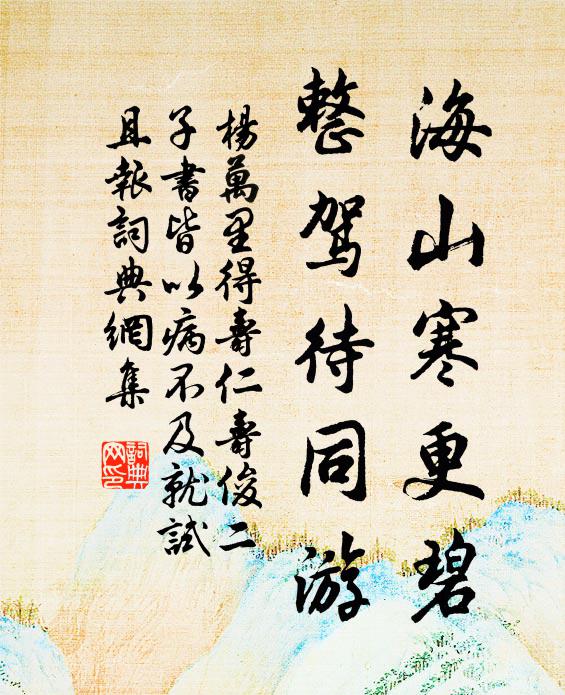 海山寒更碧
整駕待同游
楊萬里得壽仁壽俊二
子書皆以病不及就試
且報詞典網集
詞典
网印